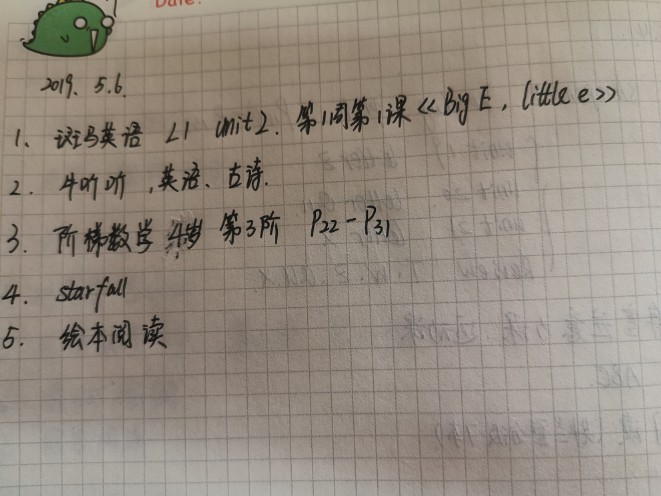 Date:
2019. 5.6.
1、斑马英语 L1 unit2. 第1周第1课《Big E, little e》
2. 牛听听,英语、古诗.
3. 阶梯数学 4岁 第3阶 P22-P31
4. starfall
5. 绘本阅读